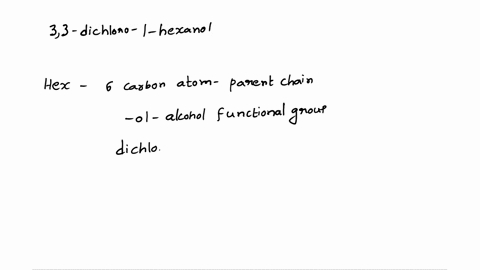 3,3-dichloro-1-hexanol
Hex - 6 carbon atom- parent chain
-ol- alcohol functional group
dichlo.